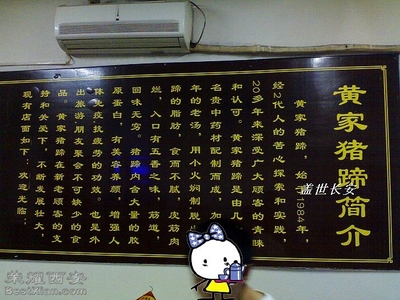 黄家猪蹄简介
黄家猪蹄，始于1984年，
经2代人的苦心探索和实践，
20多年来深受广大顾客的青睐
和认可。黄家猪蹄是由几
名贵中药材配制而成，加
年的老汤，用小火焖制脱
蹄的脂肪，食而不腻，皮筋肉
烂，入口有五香之味，筋道，
回味无穷。猪蹄内含大量的胶
原蛋白，有美容养颜，增强人
体免疫抗疲劳的功效。也是外
出旅游朋友聚会不可缺少的食
品。黄家猪蹄在新老顾客的支
持和关爱下，不断发展壮大，
现有店面如下：欢迎光临：
盖世长安
荣耀西安
BestXian.com